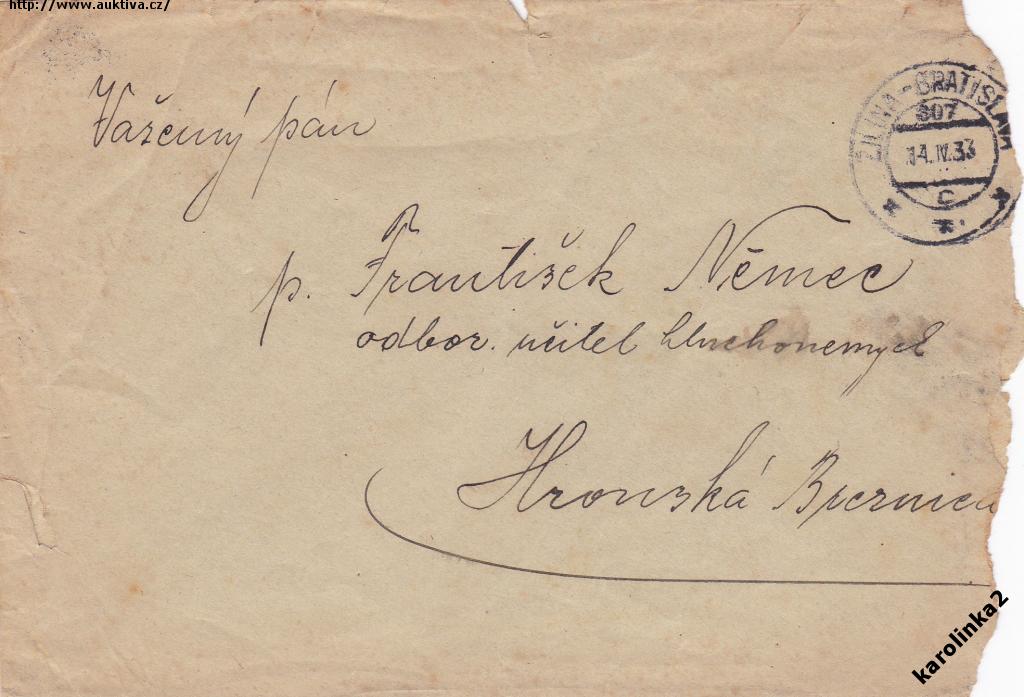 http://www.auktiva.cz/
Važený pán
ŽILINA-BRATISLAVA
307
14.IV.33
C
p. František Němec
odbor. učitel hluchonemych
Hronská
karolinka2